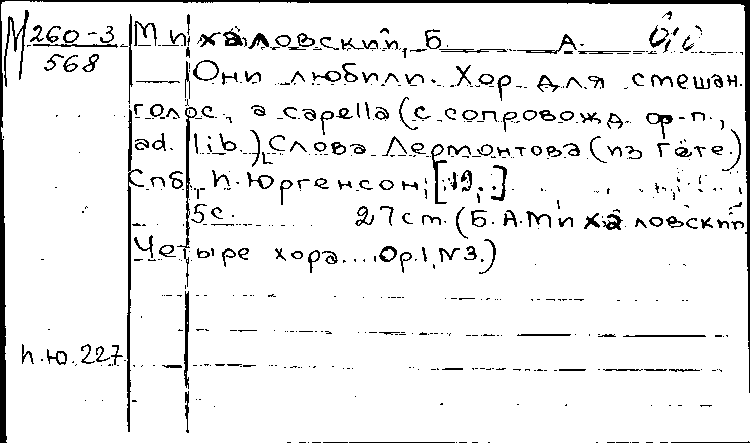 М 260-3 Михаловский, Б. А.
568
Они любили. Хор для смешан.
голос. a capella (с сопровожд. ф-п.,
ad. lib.). Слова Лермонтова (из Гёте.)
Спб., П. Юргенсон, [19..]
5с. 27 см. (Б. А. Михаловский
Четыре хора.... Op.1, N3.)
П.Ю. 227